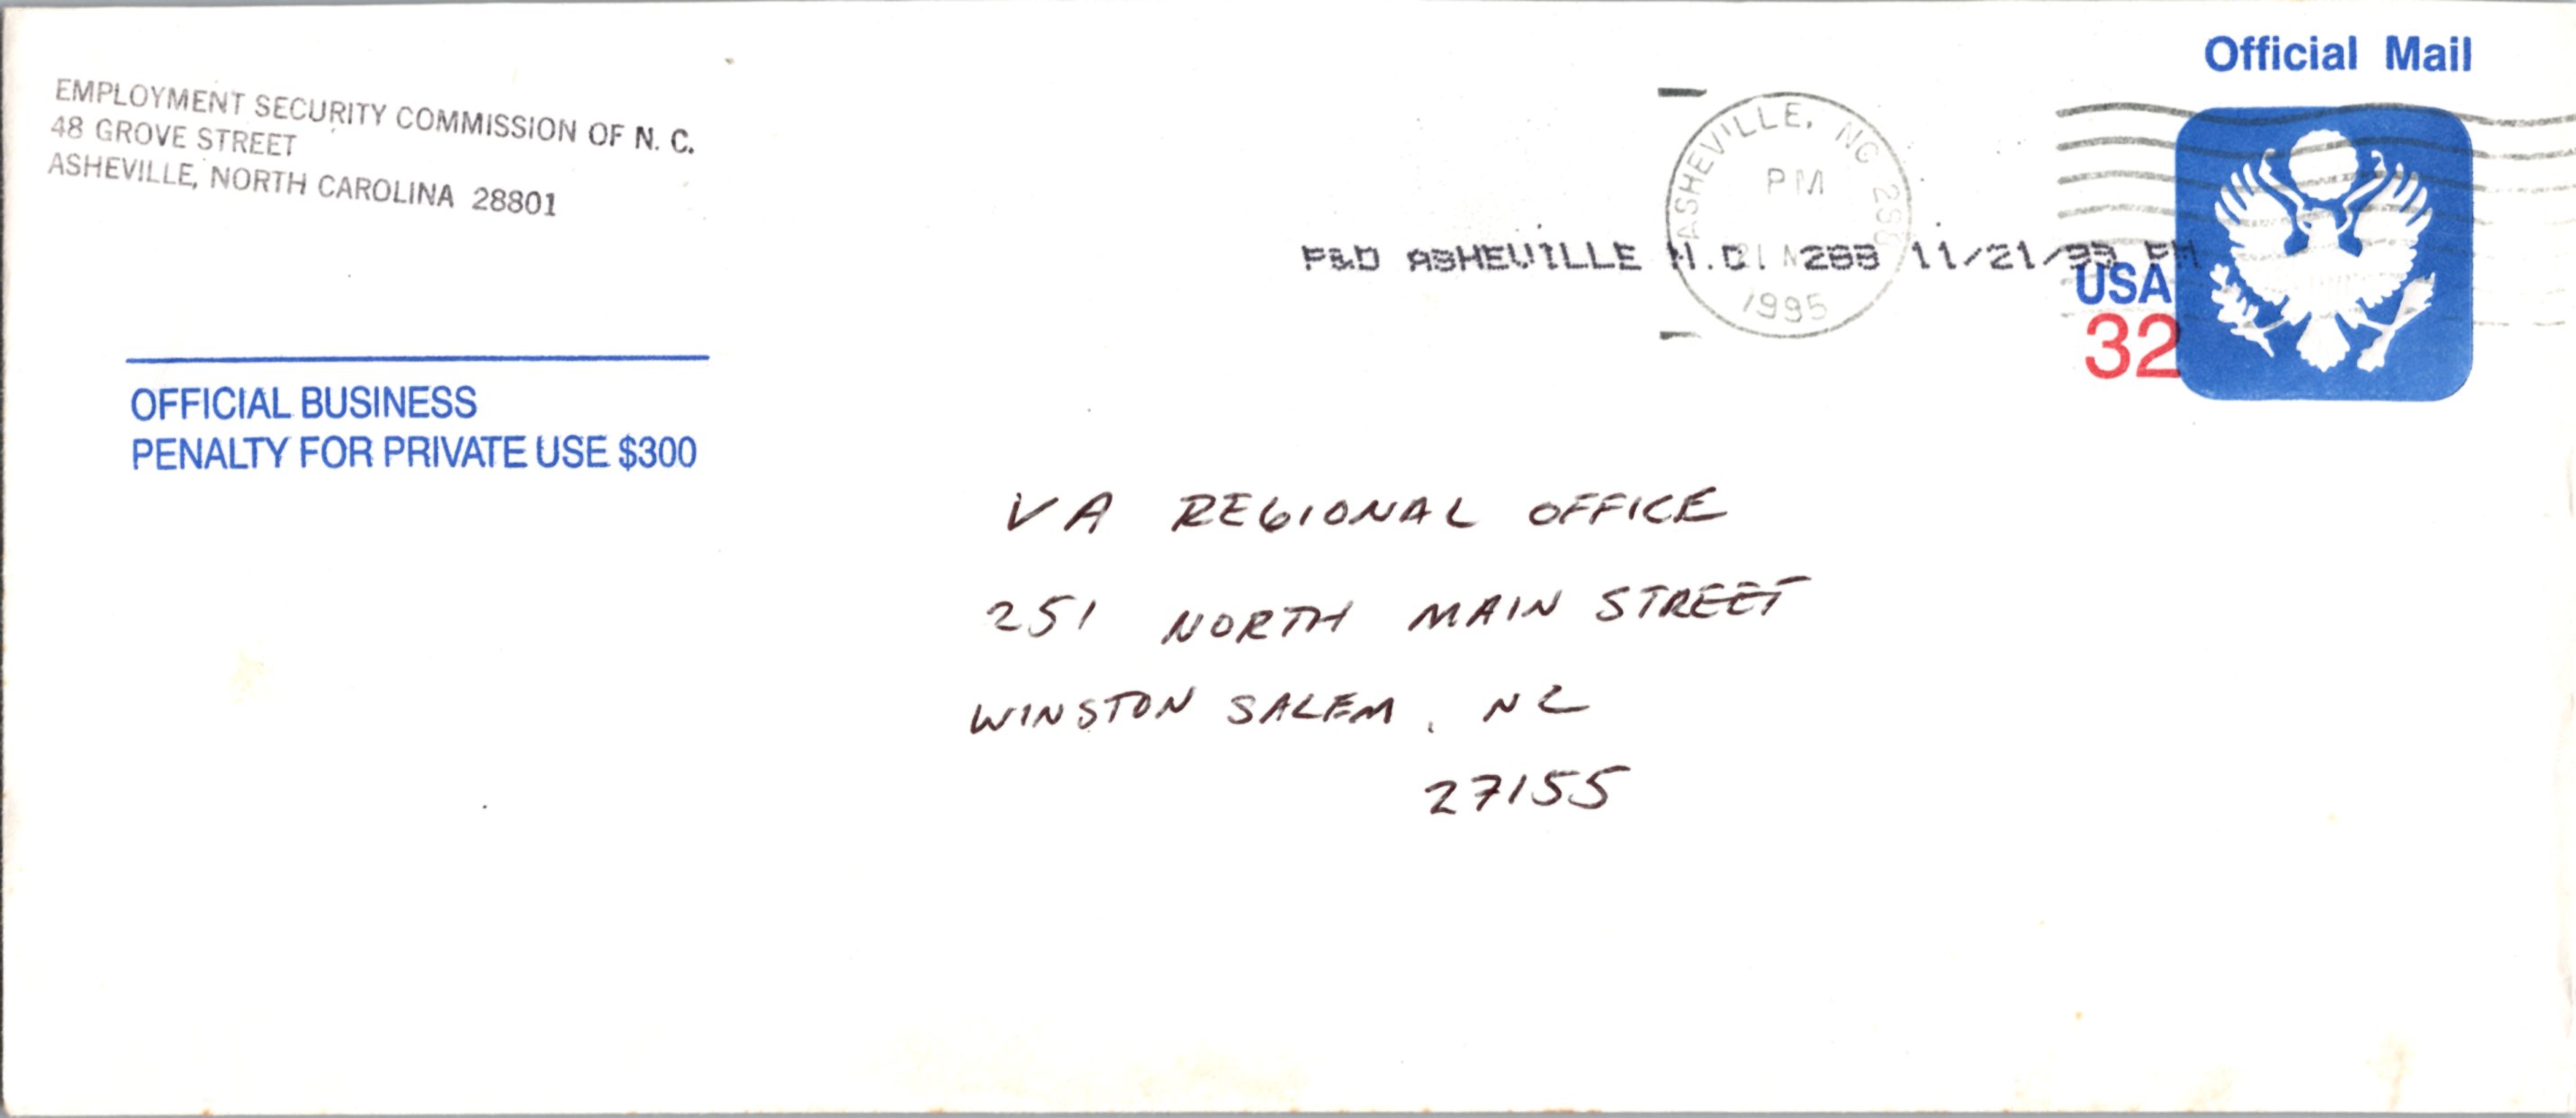 EMPLOYMENT SECURITY COMMISSION OF N. C.
48 GROVE STREET
ASHEVILLE, NORTH CAROLINA 28801
OFFICIAL BUSINESS
PENALTY FOR PRIVATE USE $300
ASHEVILLE, NC 288
PM
21 N
1995
P&D ASHEVILLE N.C. 288 11/21/95 PM
Official Mail
USA
32
VA REGIONAL OFFICE
251 NORTH MAIN STREET
WINSTON SALEM, NC
27155